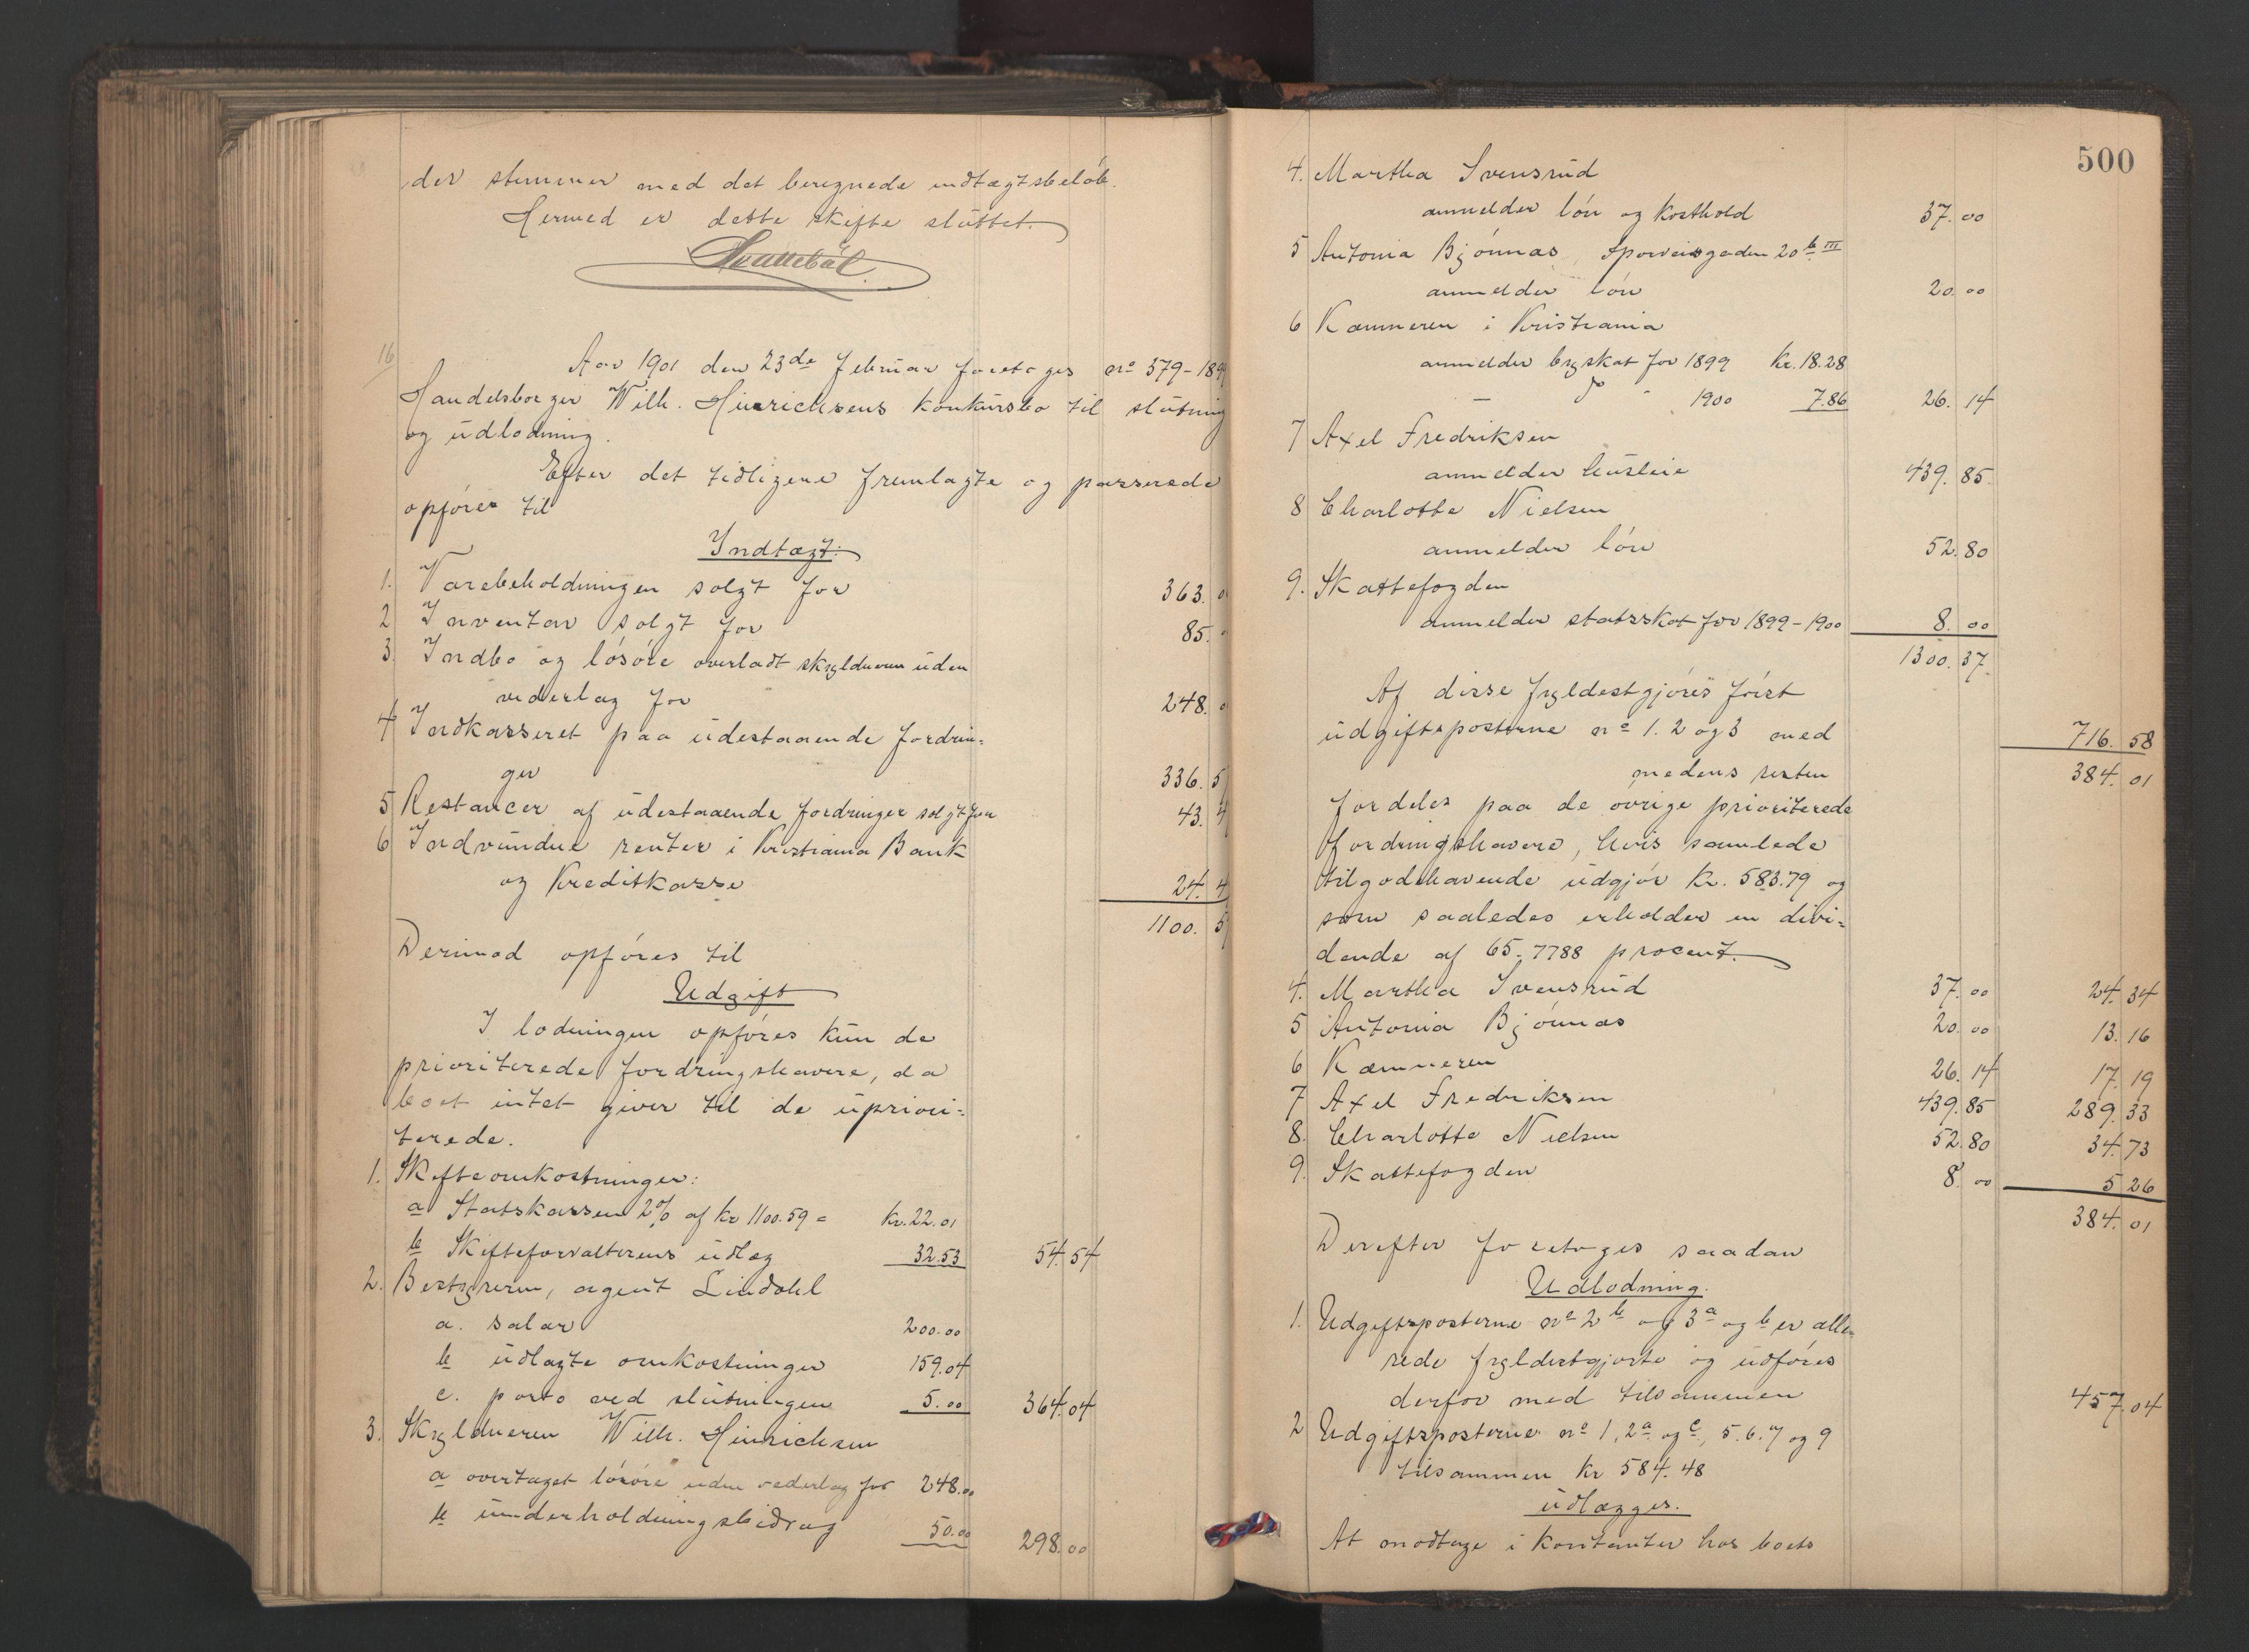 der stemmer med det beregnede indtægtsbeløb.
Hermed er dette skifte sluttet.
16
Aar 1901 den 23de februar foretages no 379-189
Handelsborger Wilh. Hinrichsens konkursbo til slutning
og udlodning.
Efter det tidligere fremlagte og passerede
opføres til
Indtægt:
1. Varebeholdningen solgt for 363. 0
2 Inventar solgt for 85.
3. Indbo og løsøre overladt skyldneren uden
vederlag for 248. 0
4 Indkasseret paa udestaaende fordrin=
ger 336. 5
5 Restancer af udestaaende fordringer solgt for 43. 4
6 Indvundne renter i Kristiania Bank
og Kreditkasse 24. 4
1100. 5
Derimod opføres til
Udgift
I lodningen opføres kun de
prioriterede fordringshavere, da
boet intet giver til de upriori=
terede.
1. Skifteomkostninger:
a Statskassen 2% af kr 1100.59 = Kr. 22.01
b Skifteforvalterens udlæg 32.53 54.54
2. Bestyreren, agent Lindahl
a. salær 200.00
b udlagte omkostninger 159.04
c. porto ved slutningen 5.00 364.04
3. Skyldneren Wilh. Hinrichsen
a overtaget løsøre uden vederlag for 248.00
b underholdningsbidrag 50.00 298.00
500
4. Martha Svensrud
anmelder løn og kosthold 37.00
5 Antonia Bjønnas, Sporveisgaden 20 b III
anmelder løn 20.00
6 Kæmneren i Kristiania
anmelder byskat for 1899 kr. 18.28
— do - 1900 7.86 26.14
7 Axel Fredriksen
anmelder husleie 439.85.
8 Charlotte Nielsen
anmelder løn 52.80
9. Skattefogden
anmelder statsskat for 1899-1900 8.00
1300.37.
Af disse fyldestgjøres først
udgiftsposterne no 1. 2 og 3 med 716.58
medens resten 384.01
fordeles paa de øvrige prioriterede
fordringshavere, hvis samlede
tilgodehavende udgjør kr. 583.79 og
som saaledes erholder en divi=
dende af 65.7788 procent.
4. Martha Svensrud 37.00 24.34
5 Antonia Bjønnas 20.00 13.16
6 Kæmneren 26.14 17.19
7 Axel Fredriksen 439.85 289.33
8. Charlotte Nielsen 52.80 34.73
9. Skattefogden 8.00 5 26
384.01
Derefter foretages saadan
Udlodning.
1. Udgiftsposterne no 2 b og 3 a og b er alle=
rede fyldestgjorte og udføres
derfor med tilsammen 457.04
2 Udgiftsposterne no 1, 2 a og c, 5. 6. 7 og 9
tilsammen kr 584.48
udlægges.
At modtage i kontanter hos boets